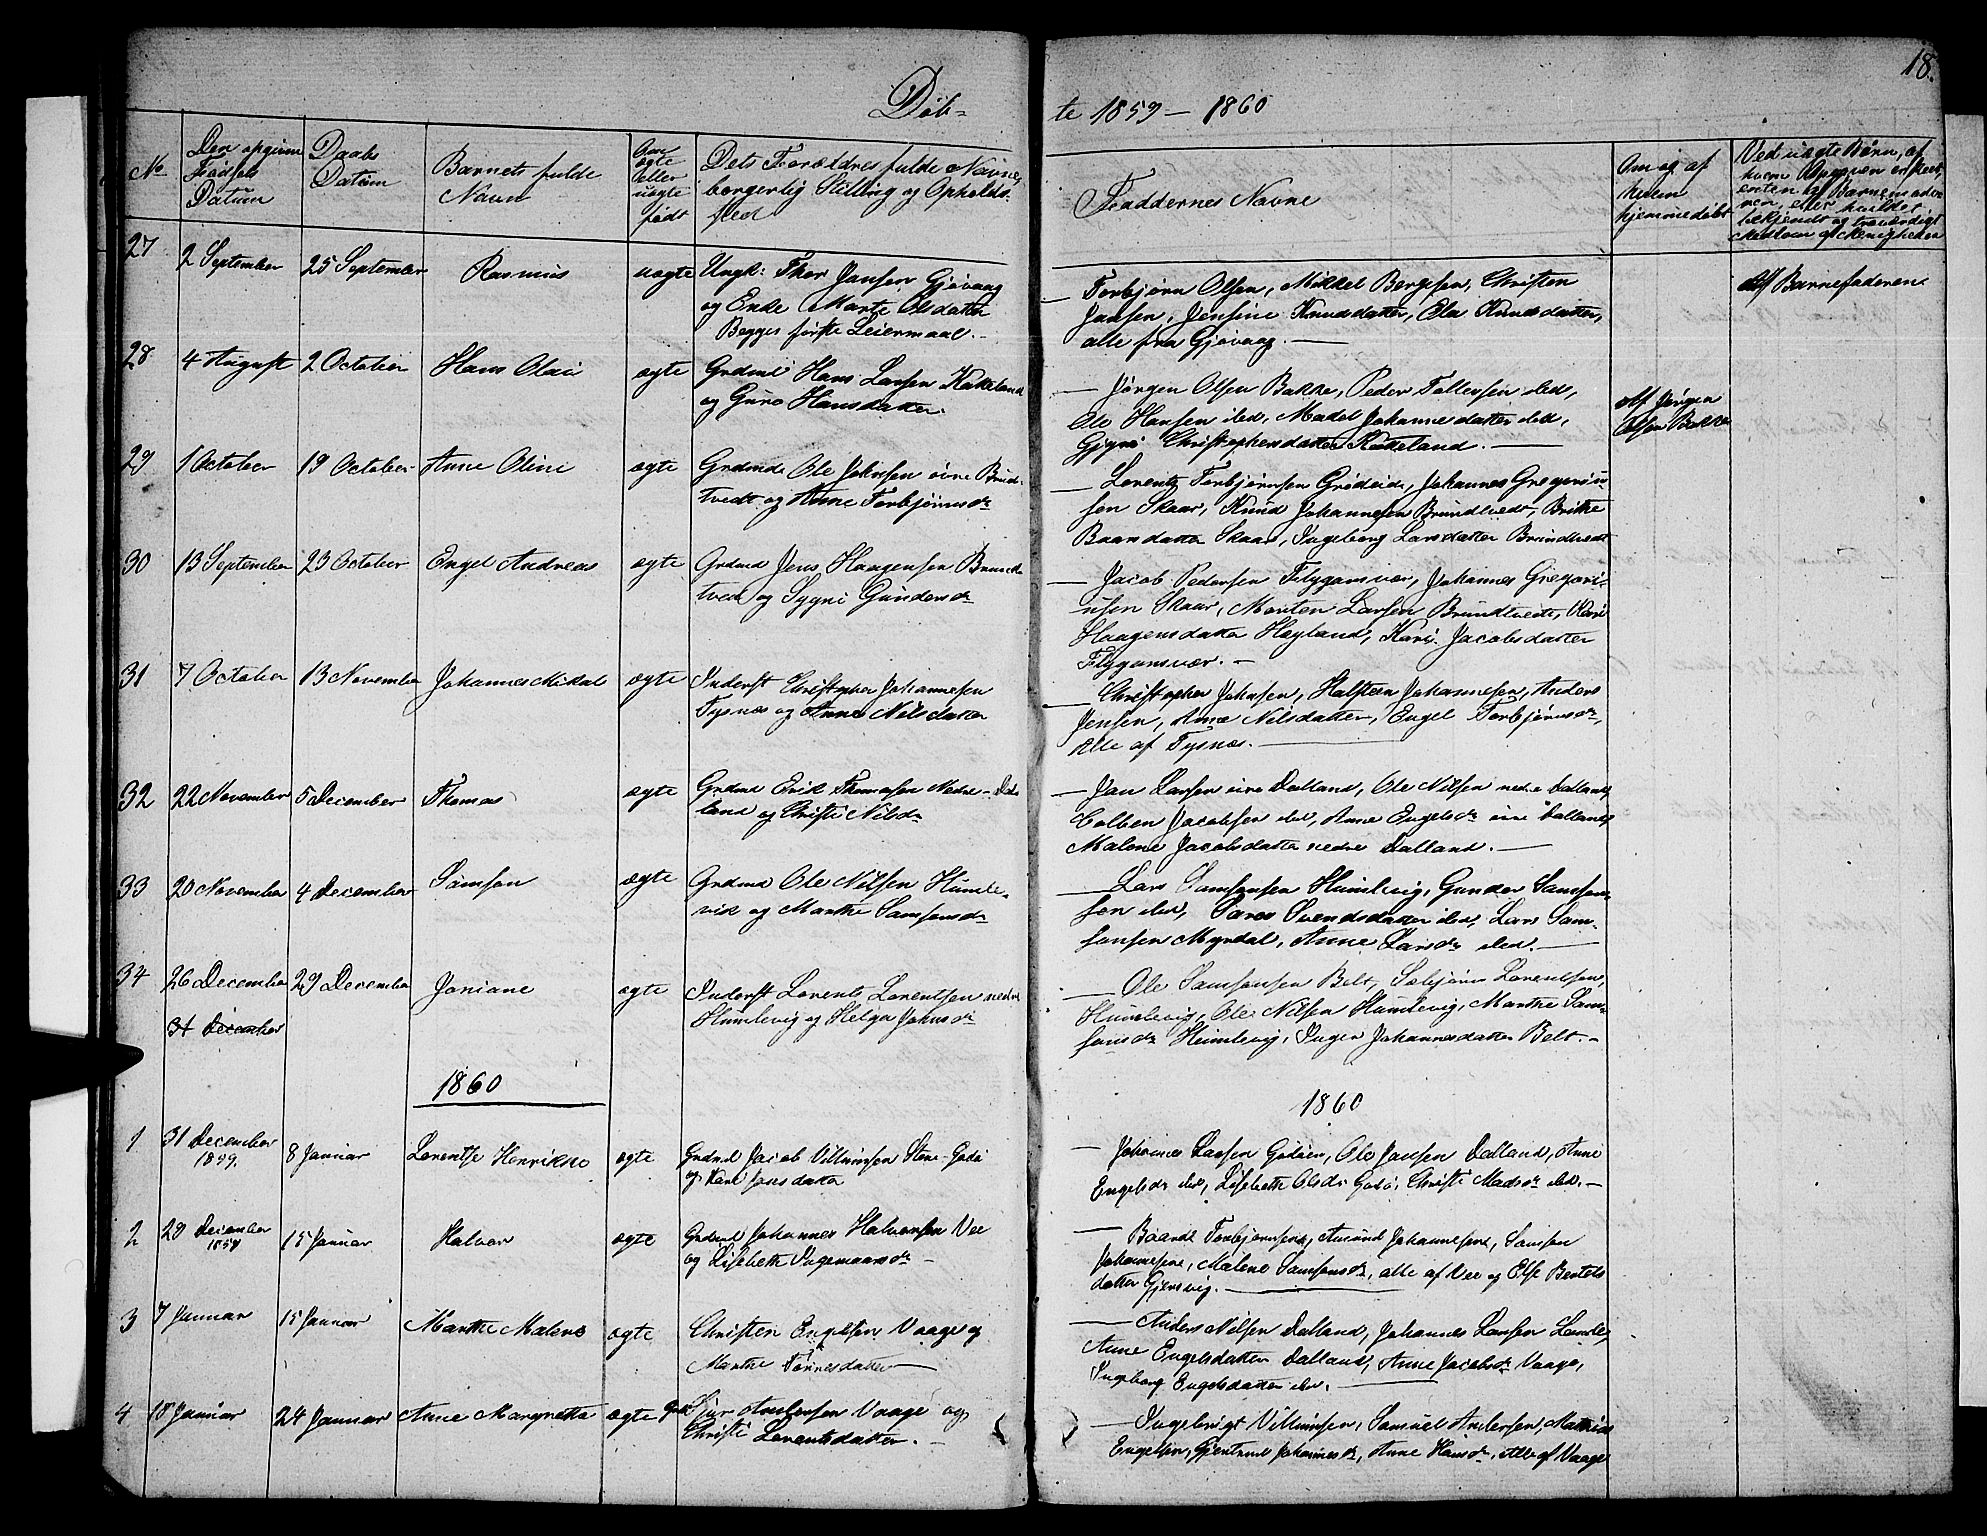 18.
Døb-
te 1859 — 1860
No
Den opgivne
Fødsels
Datum
Daabs
Datum
Barnets fulde
Navn
Om
ægte
eller
uægte
født
Dets Forældres fulde Navne,
borgerlig Stilling og Opholds-
sted
Faddernes Navne
Om og af
hvem
hjemmedøbt
Ved uægte Børn, af
hvem Opgaven er skeet,
enten af Barnemode-
ren, eller hvilket
bekjendt og troværdigt
Medlem af Menigheden
27
2 September
25 September
Rasmus
uægte
Ungk: Thor Jansen Gjøvaag
og Enke Marte Olsdatter
Begges første Leiermaal.
Torbjørn Olsen, Mikkel Bergesen, Christen
Jansen, Jensine Knudsdatter, Ela Knudsdatter,
alle fra Gjøvaag. —
Af Barnefaderen.
28
4 August
2 October
Hans Olai
ægte
Grdmd Hans Larsen Kakeland
og Guro Hansdatter.
— Jørgen Olsen Bakke, Peder Tollefsen ibd,
Ole Hansen ibd, Madel Johannesdatter ibd,
Gjyri Christophersdatter Kakeland. —
Af Jørgen
Olsen Bakke
29
1 October
19 October
Anne Oline
ægte
Grdmd Ole Johnsen øvre Brund-
tvedt og Anne Torbjørnsdr
— Lorents Torbjørnsen Grødeide, Johannes Gregorius-
sen Skaar, Knud Johannesen Brundtvedt, Brithe
Baardsdatter Skaar, Ingeborg Larsdatter Brundtvedt
30
13 September
23 October
Engel Andreas
ægte
Grdmd Jens Haagensen Brundt-
tvedt og Sygni Gundersdr
— Jacob Pedersen Flygansvær, Johannes Gregori-
ussen Skaar, Morten Larsen Brundtvedt, Kari
Haagensdatter Høyland, Kari Jacobsdatter
Flygansvær. —
31
7 October
13 November
Johannes Mikal
ægte
Inderst Christopher Johannesen
Tysnes og Anne Nilsdatter
— Christopher Johnsen, Halsteen Johannesen, Anders
Jensen, Anne Nilsdatter, Engel Torbjørnsdr,
Alle af Tysnes. —
32
22 November
5 December
Thomas
ægte
Grdmd Erik Thomasen Nedre-Dal-
land og Christi Nilsdr
— Jan Larsen øvre Dalland, Ole Nilsen nedre Dalland,
Colben Jacobsen ibd, Anne Engelsdr øvre Dalland,
Malene Jacobsdatter nedre Dalland. —
33
20 November
4 December
Samson
ægte
Grdmd Ole Nilsen Humle-
vik og Marthe Samsonsdr
— Lars Samsonsen Humlevig, Gunder Samson-
sen ibd, Søren Svendsdatter ibd, Lars Sam-
sonsen Myrdal, Anne Larsdr ibd. —
34
26 December
29 December
Joniane
ægte
Inderst Lorents Lorentsen nedre
Humlevig og Helga Johnsdr
— Ole Samsonsen Belt, Sebjørn Lorentsen,
Humlevig, Ole Nilsen Humlevig, Marthe Sam-
sonsdr Humlevig, Inger Johannesdatter Belt. —
31 December
1860
1860
1
31 December
1859.
8 Januar
Lorentse Henrikke
ægte
Grdmd Jacob Villumsen Stene-Godø
og Kari Jansdatter
— Johannes Larsen Godøen, Ole Jansen Dalland, Anne
Engelsdr ibd, Lisebeth Olsdr Godø, Christi Madsdr ibd. —
2
28 December
1859
15 Januar
Halvor
ægte
Grdmd Johannes Halvorsen Vee
og Lisebeth Ingemannsdr —
— Baard Torbjørnsen, Amund Johannesen, Samson
Johannesen, Malene Samsonsdr, alle af Vee og Else Bertels-
datter Gjersvig. —
3
7 Januar
15 Januar
Marthe Malene
ægte
Christen Engelsen Vaage og
Marthe Tønnesdatter —
— Anders Nilsen Dalland, Johannes Larsen Lande,
Anne Engelsdatter Dalland, Anne Jacobsdr Vaage,
Ingeborg Engelsdatter ibd. —
4
18 Januar
24 Januar
Anne Margretha
ægte
Grdmd Sjur Andersen Vaage og
Christi Lorentsdatter. —
— Ingebrigt Villumsen, Samuel Andersen, Mathias
Engelsen, Gjertrud Johannesdr, Anne Hansdr, Alle af Vaage